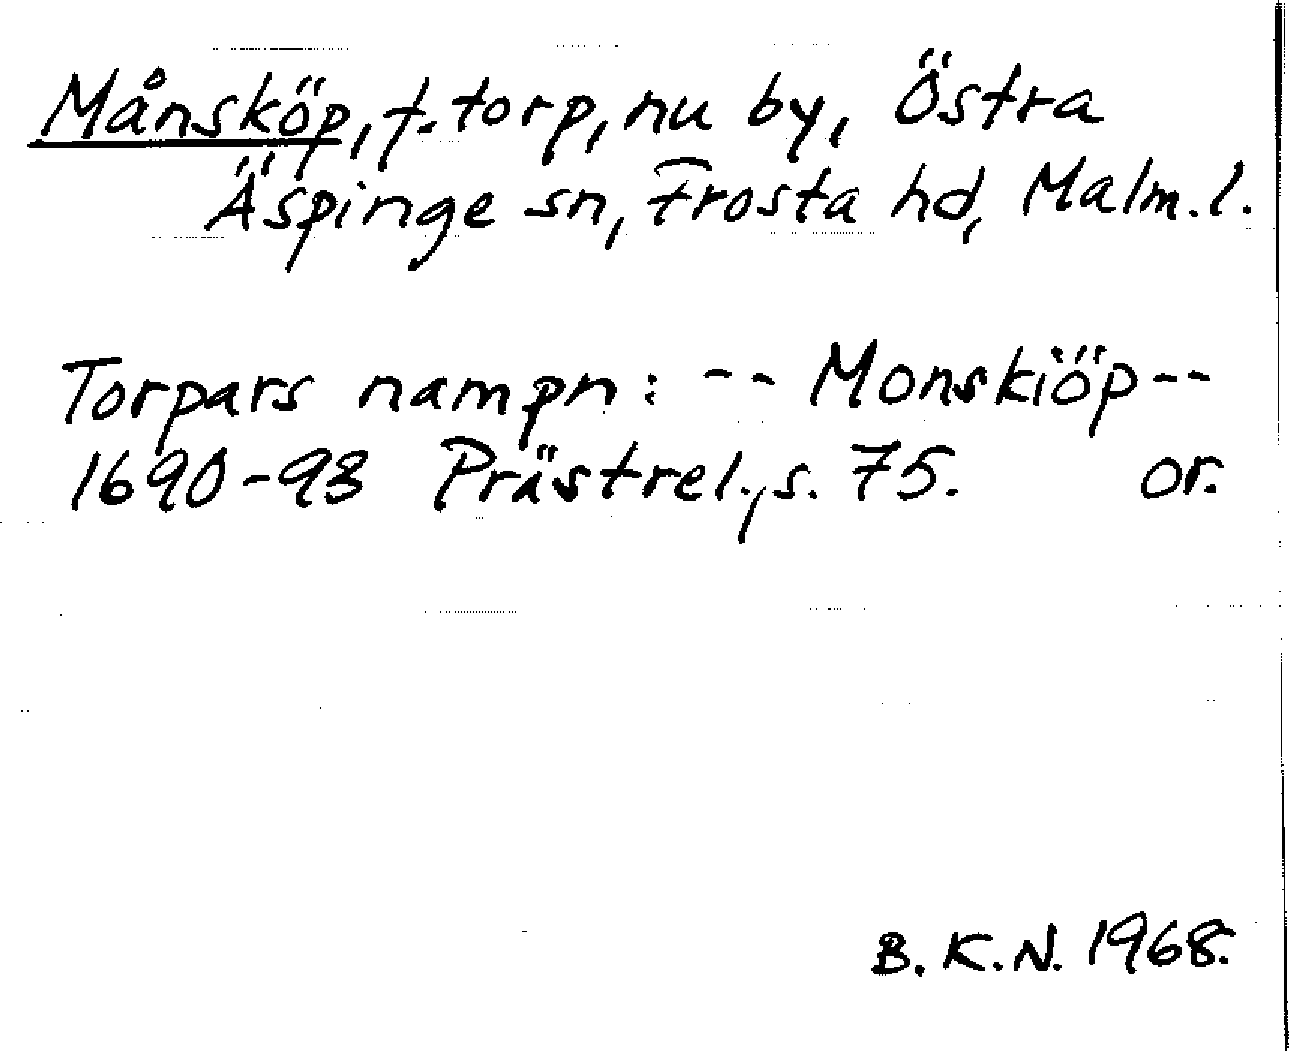 Månsköp, f. torp, nu by, Östra
Äspinge sn, Frosta hd, Malm. l.
Torpars nampn: -- Monskiöp --
1690-93 Prästrel., s. 75. or.
B. K. N. 1968.